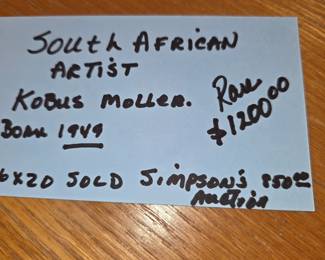 South African
Artist
Kobus Moller.
Rare
$1200.00
Born 1949
6x20 Sold Simpson's 850.00
Auction